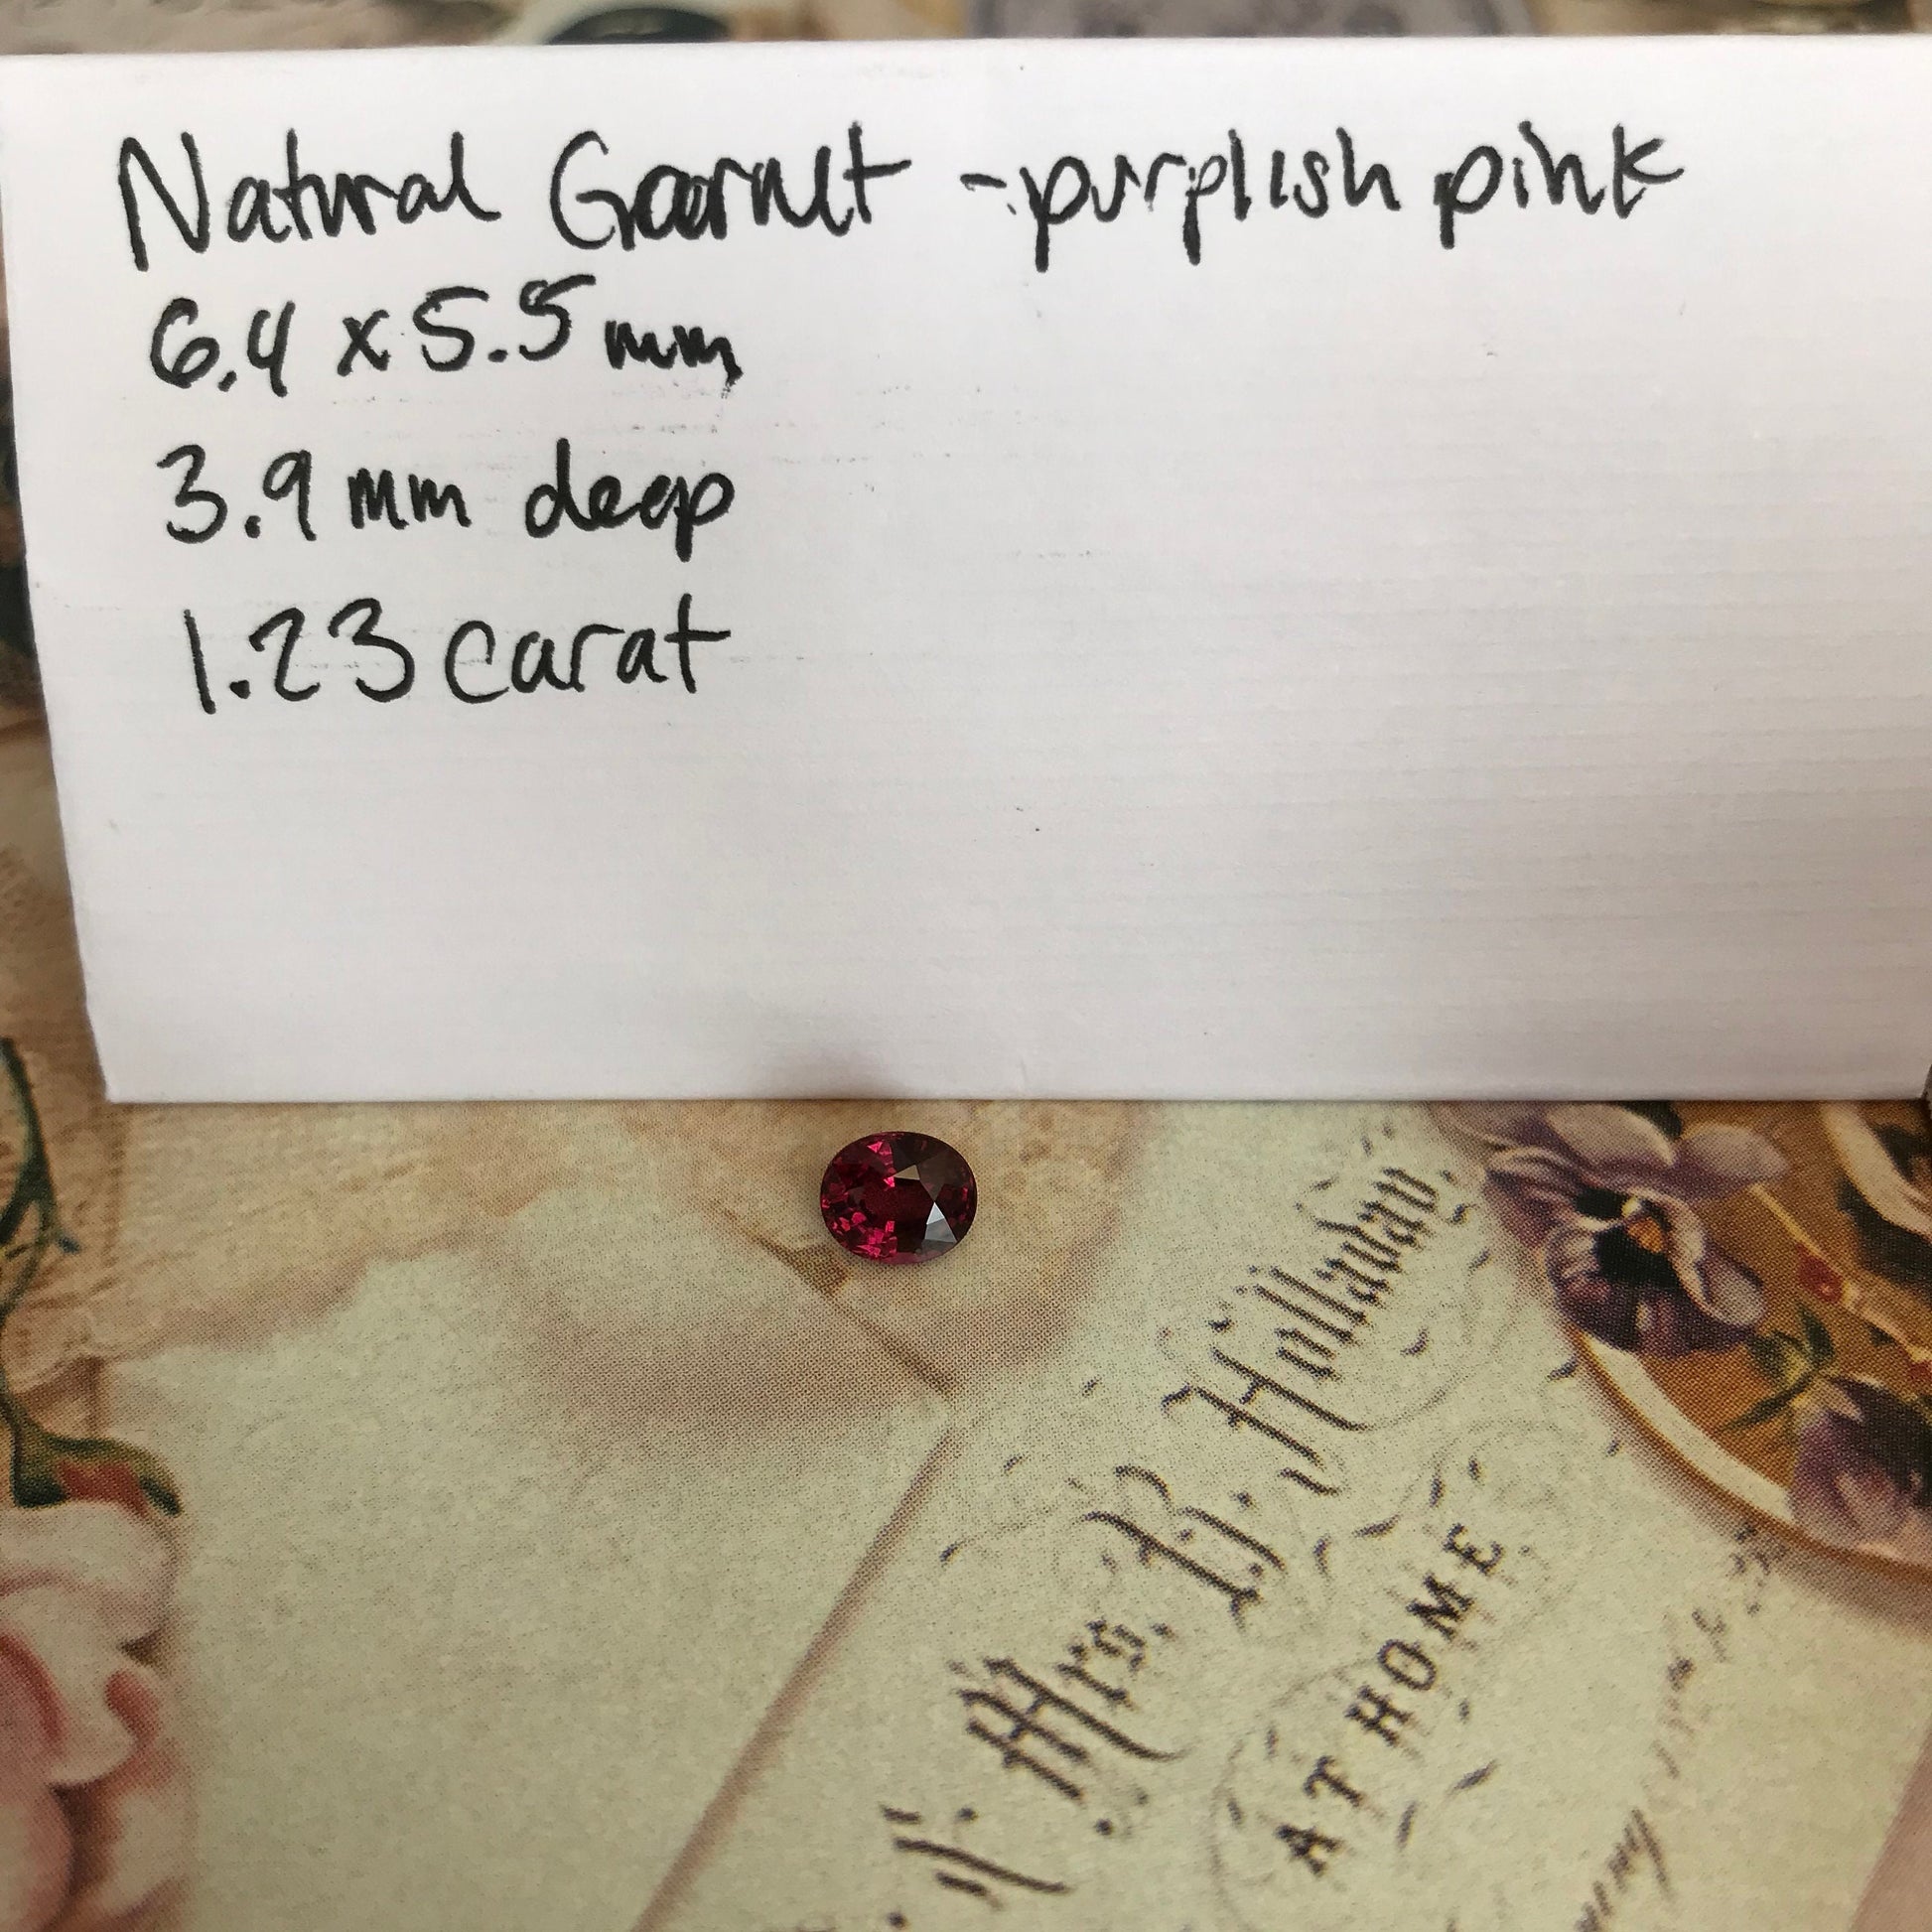 Natural Garnet - purplish pink
6.4 x 5.5 mm
3.9 mm deep
1.23 carat
Mrs. B. Holladay,
AT HOME